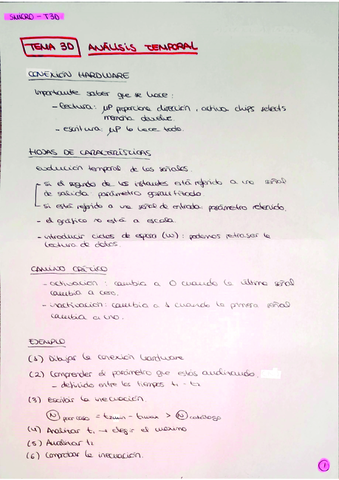 SMICRO - T3D
TEMA 3D ANÁLISIS TEMPORAL
CONEXIÓN HARDWARE
Importante saber que se hace:
- Lectura: μP proporciona dirección, activa chips selects
memoria devuelve.
- escritura: μP lo hace todo.
HOJAS DE CARACTERÍSTICAS
evolución temporal de las señales.
si el segundo de los instantes está referido a una señal
de salida: parámetro garantizado
si está referido a una señal de entrada: parámetro requerido.
- el gráfico no está a escala.
- introducir ciclos de espera (w): podemos retrasar la
lectura de datos.
CAMINO CRÍTICO
- activación: cambia a 0 cuando la última señal
cambia a cero.
- inactivación: cambia a 1 cuando la primera señal
cambia a uno.
EJEMPLO
(1) Dibujar la conexión hardware
(2) Comprender el parámetro que estás analizando
- definido entre los tiempos t1 - t2.
(3) Escribir la inecuación.
(4) Analizar t1 → eleg= el máximo
(5) Analizar t2
(6) Comprobar la inecuación.
1